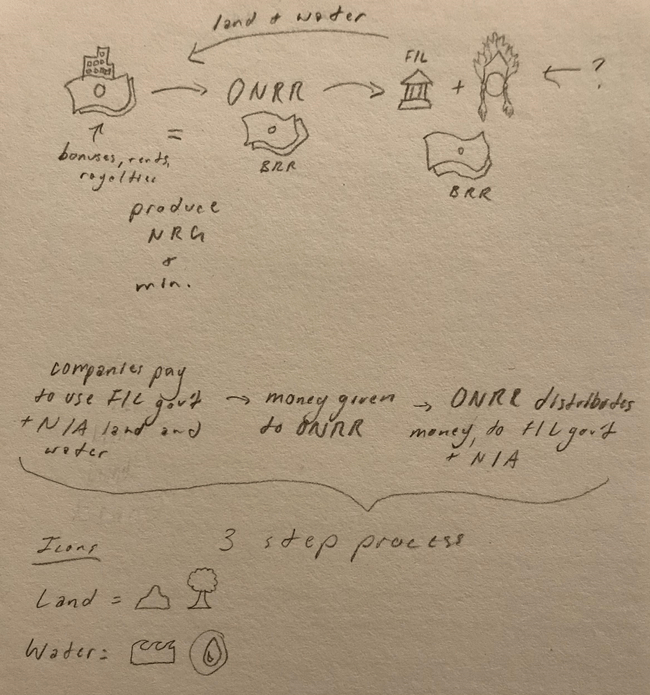 land + water
F/L
ONRR
+
← ?
=
BRR
BRR
bonuses, rents,
royalties
produce
NRG
&
min.
companies pay
to use F/L gov't
+ N/A land and
water
→ money given
to ONRR
→ ONRR distributes
money to F/L gov't
+ N/A
3 step process
Icons
Land =
Water =